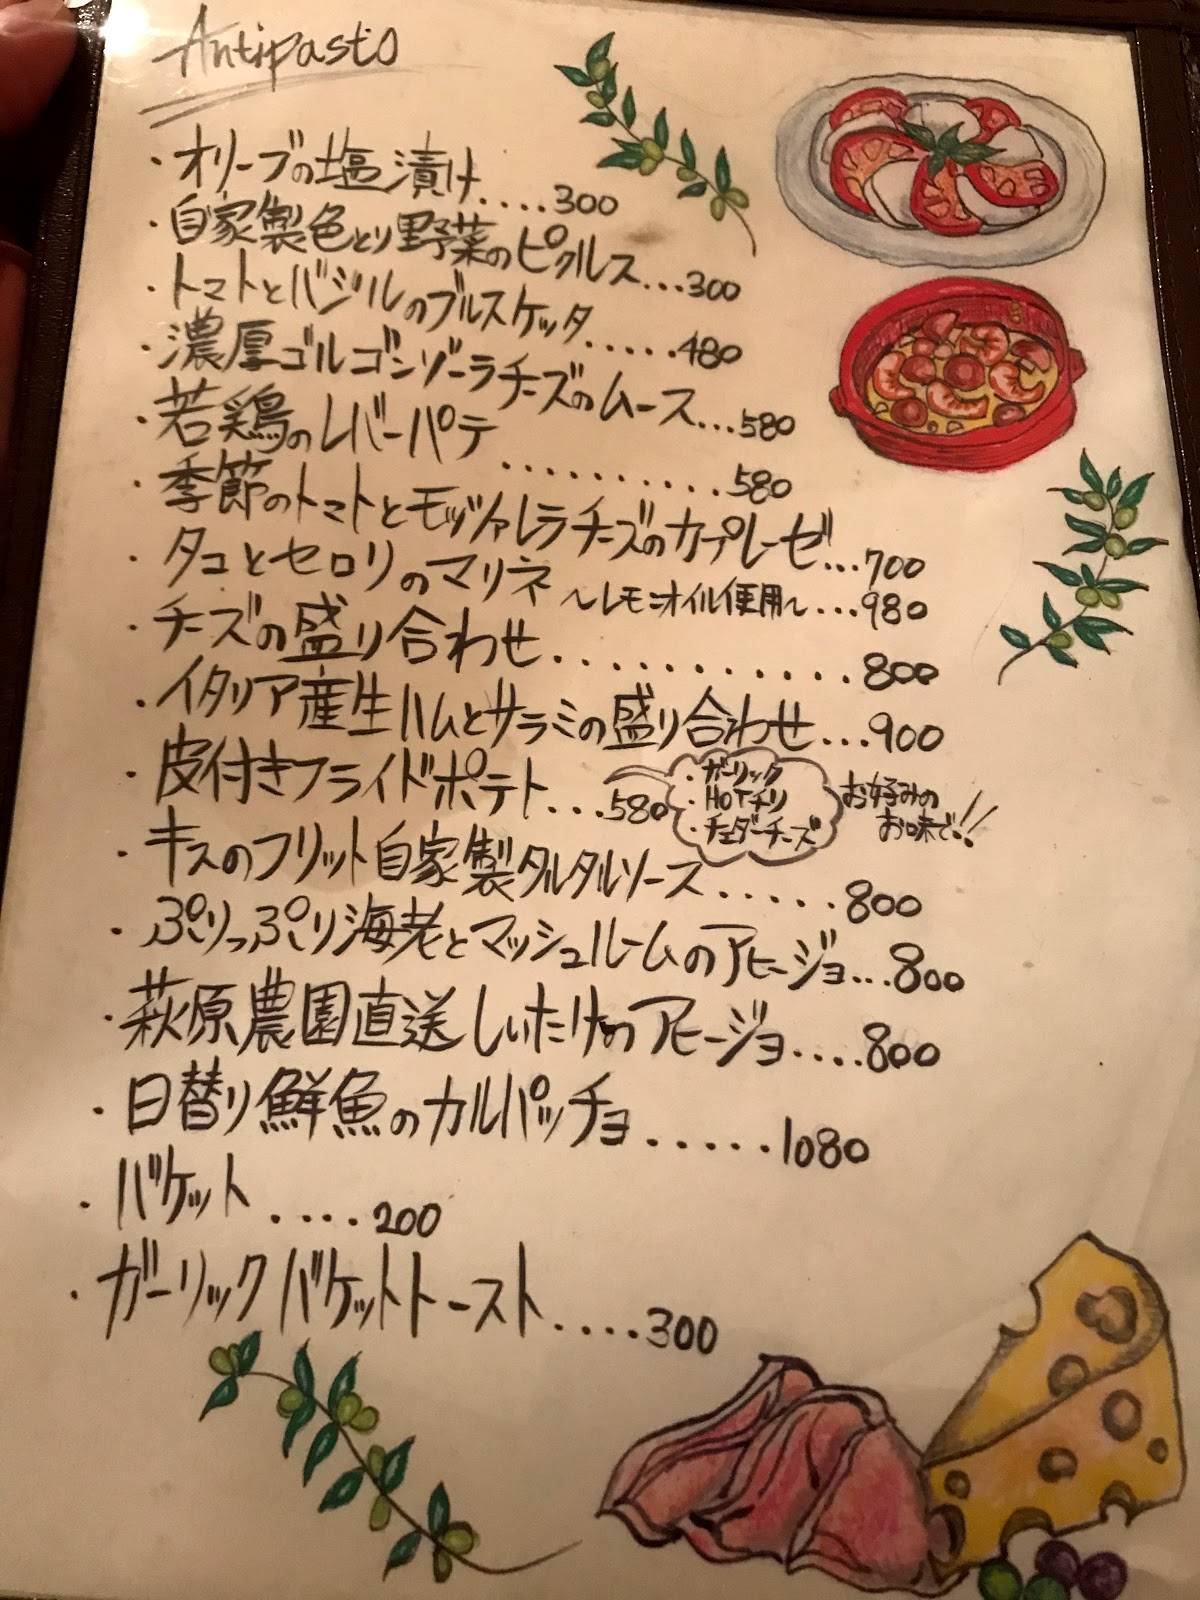 Antipasto
・オリーブの塩漬け....300
・自家製色とり野菜のピクルス...300
・トマトとバジルのブルスケッタ.....480
・濃厚ゴルゴンゾーラチーズのムース...580
・若鶏のレバーパテ..........580
・季節のトマトとモッツァレラチーズのカプレーゼ...700
・タコとセロリのマリネ 〜レモンオイル使用〜...980
・チーズの盛り合わせ.............800
・イタリア産生ハムとサラミの盛り合わせ...900
・皮付きフライドポテト...580
・ガーリック
・HOTチリ
・チェダーチーズ
お好みの
お味で!!
・キスのフリット自家製タルタルソース.....800
・ぷりっぷり海老とマッシュルームのアヒージョ...800
・萩原農園直送しいたけのアヒージョ....800
・日替り鮮魚のカルパッチョ.....1080
・バケット....200
・ガーリックバケットトースト....300